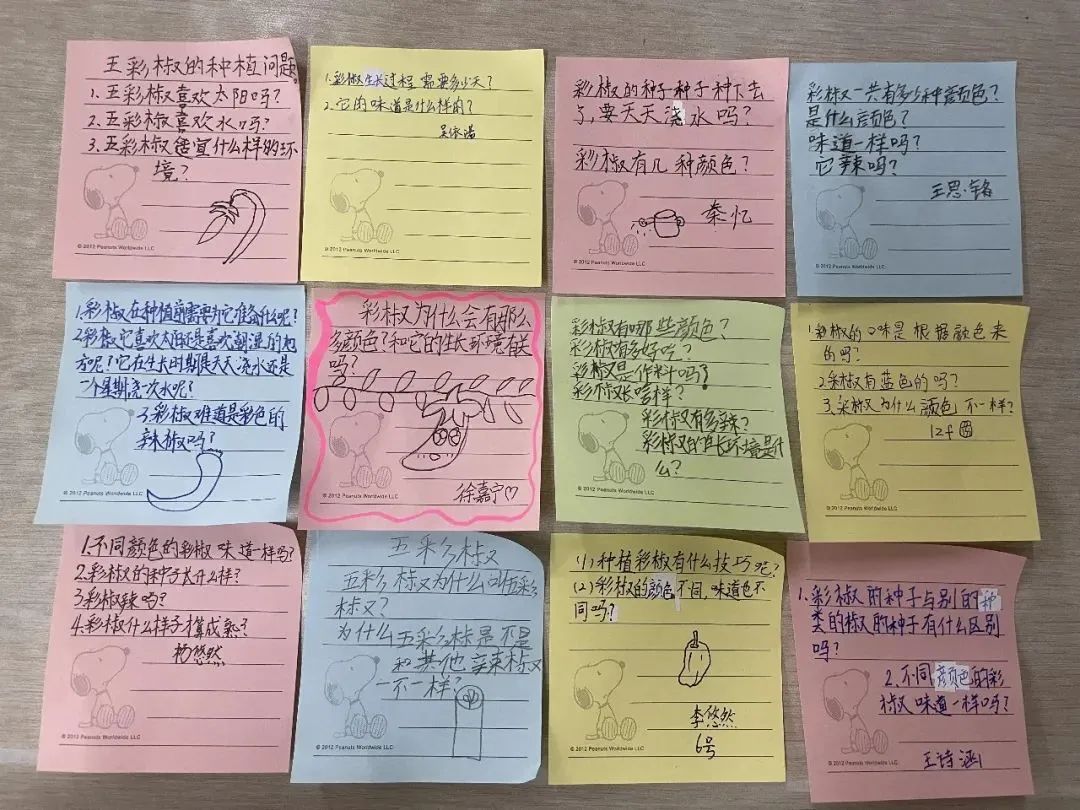 五彩椒的种植问题
1.五彩椒喜欢太阳吗?
2.五彩椒喜欢水吗?
3.五彩椒适宜什么样的环
境?
© 2012 Peanuts Worldwide LLC
1.彩椒生长过程需要多少天?
2.它的味道是什么样的?
© 2012 Peanuts Worldwide LLC
彩椒的种子种子种下去
了,要天天浇水吗?
彩椒有几种颜色?
秦忆
© 2012 Peanuts Worldwide LLC
彩椒一共有多少种颜色?
是什么颜色?
味道一样吗?
它辣吗?
王思铭
© 2012 Peanuts Worldwide LLC
1.彩椒在种植前需要为它准备什么呢?
2.彩椒它喜欢太阳还是喜欢潮湿的地
方呢?它在生长时期是天天浇水还是
一个星期浇一次水呢?
3.彩椒难道是彩色的
辣椒吗?
© 2012 Peanuts Worldwide LLC
彩椒为什么会有那么
多颜色?和它的生长环境有关
吗?
徐嘉宁♡
© 2012 Peanuts Worldwide LLC
彩椒有哪些颜色?
彩椒有多好吃?
彩椒是作料吗?
彩椒长啥样?
彩椒有多辣?
彩椒的生长环境是什
么?
© 2012 Peanuts Worldwide LLC
1.彩椒的口味是根据颜色来
的吗?
2.彩椒有蓝色的吗?
3.彩椒为什么颜色不一样?
© 2012 Peanuts Worldwide LLC
1.不同颜色的彩椒味道一样吗?
2.彩椒的种子长什么样?
3.彩椒辣吗?
4.彩椒什么样子才算成熟?
杨悠然
© 2012 Peanuts Worldwide LLC
五彩椒
五彩椒为什么叫五彩
椒?
为什么五彩椒是不是
和其他辣椒
不一样?
© 2012 Peanuts Worldwide LLC
(1)种植彩椒有什么技巧呢?
(2)彩椒的颜色不同,味道也不
同吗?
李悠然
6号
© 2012 Peanuts Worldwide LLC
1.彩椒的种子与别的种
类的椒的种子有什么区别
吗?
2.不同颜色的彩
椒味道一样吗?
王诗涵
© 2012 Peanuts Worldwide LLC